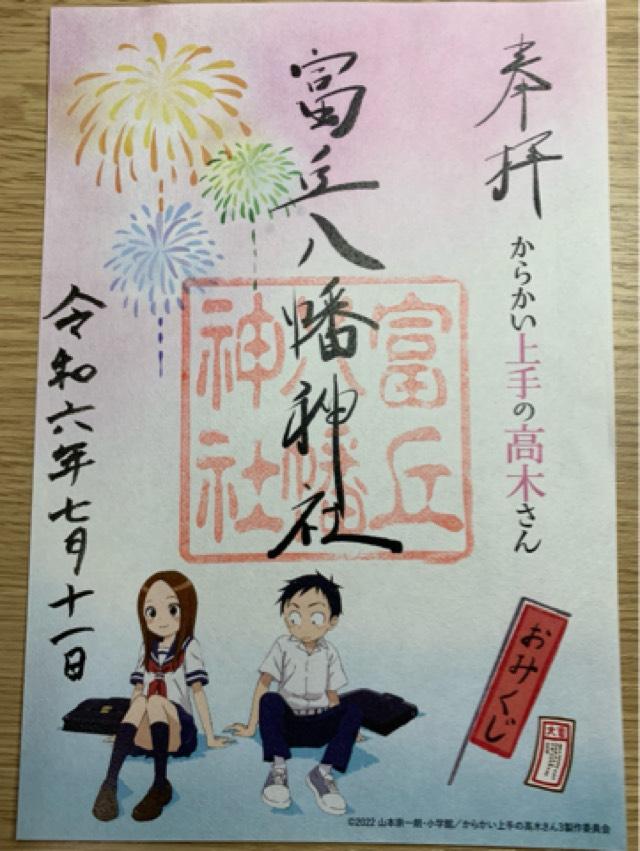 奉拝
からかい上手の高木さん
富丘八幡神社
富丘
八幡
神社
令和六年七月十一日
おみくじ
大吉
©2022 山本崇一朗・小学館/からかい上手の高木さん3製作委員会